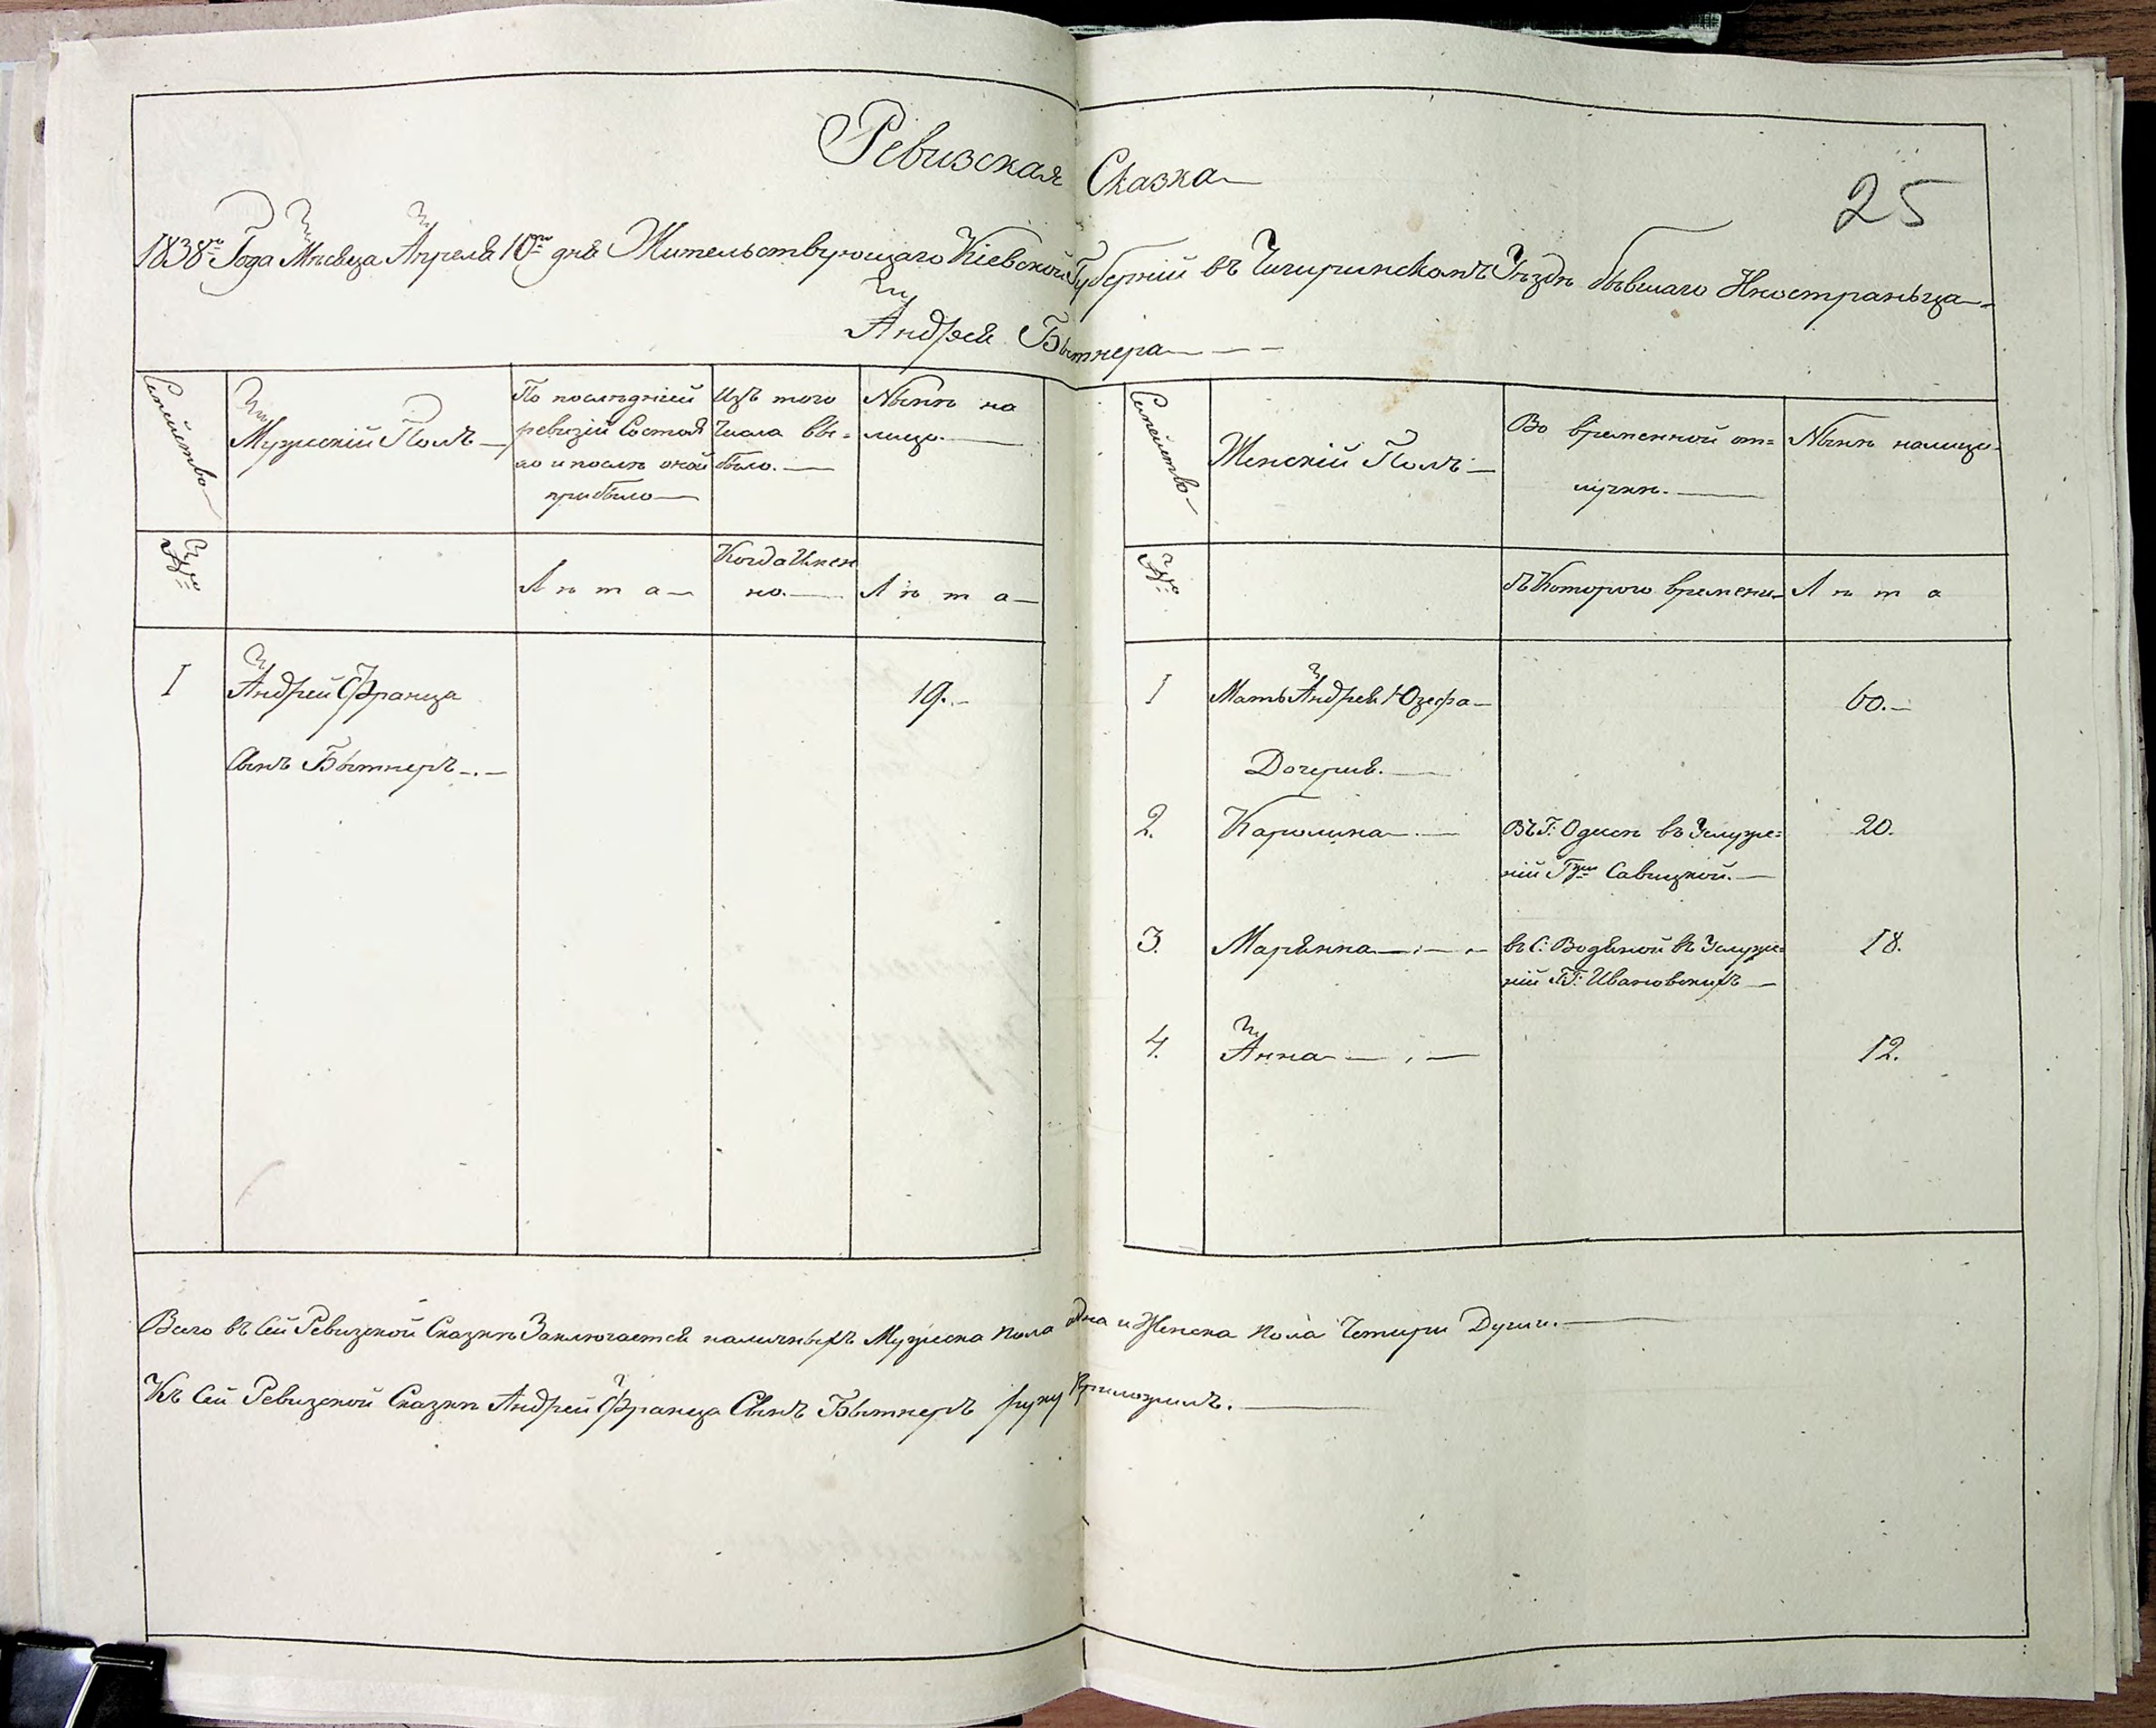 Ревизская Сказка
25
1838го Года Мѣсяца Апреля 10го дня Жительствующаго Кіевской Губерніи въ Чигиринскомъ Уѣздѣ бывшаго Иностраньца
Андрея Бытнера
Семейство
Мужескій Полъ
По послѣдней
ревизіи Состоя
ло и послѣ оной
прибыло
Изъ того
Числа вы=
было.
Нынѣ на
лицо.
Семейство
Женскій Полъ
Во временной от=
лучкѣ.
Нынѣ налицо
№
Лѣта
Когда Имен
но.
Лѣта
№
Съ Которого времени
Лѣта
1
Андрей Франца
Сынъ Бытнеръ
19.
1
Мать Андрея Юзефа
60.
Дочерия.
2.
Каролина
Въ Г: Одесѣ въ Услуже=
ніи Гжи Савицкой.
20.
3.
Марянна
въ С: Водяной въ Услуже=
ніи Г.Г: Ивановскихъ
18.
4.
Анна
12.
Всего въ Сей Ревизской Сказкѣ Заключается наличныхъ Мужеска пола Одна и Женска пола Четыри Души.
Къ Сей Ревизской Сказкѣ Андрей Франца Сынъ Бытнеръ руку Приложилъ.